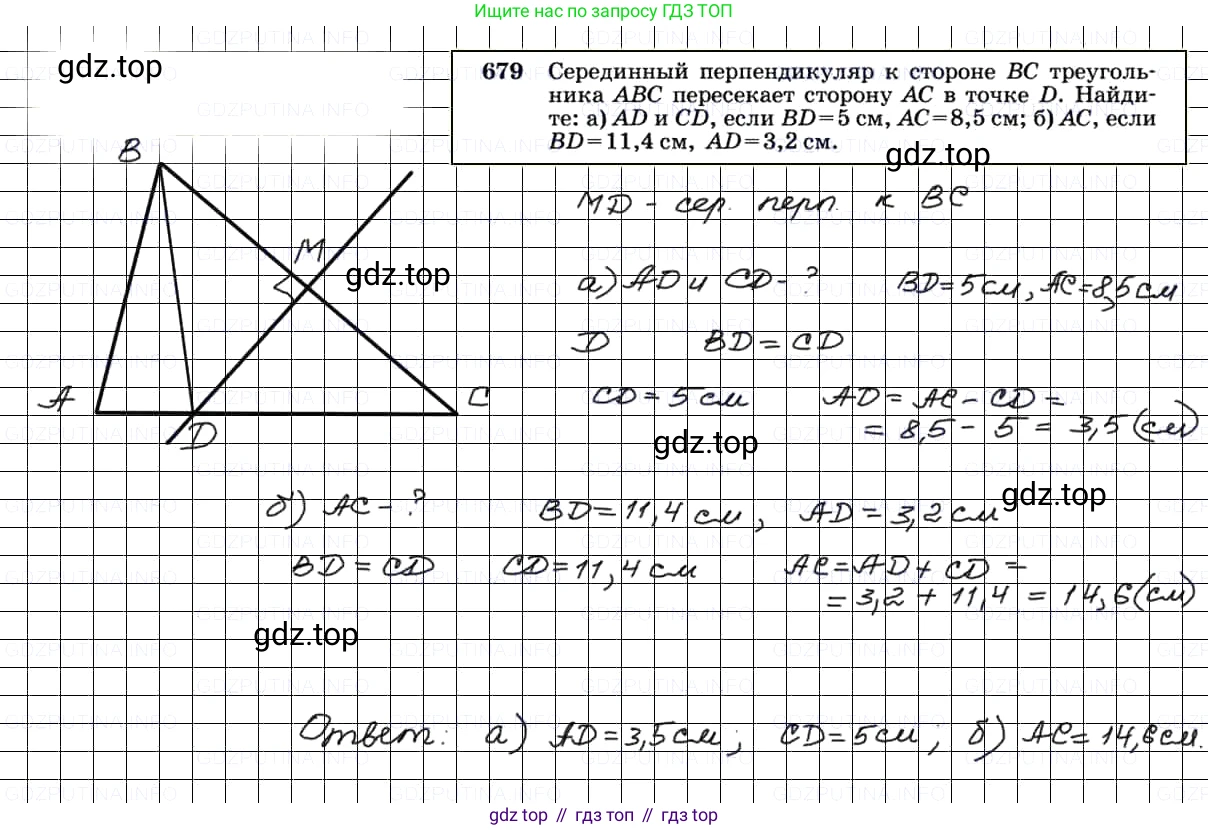 Ищите нас по запросу ГДЗ ТОП
gdz.top
679 Серединный перпендикуляр к стороне BC треуголь-
ника ABC пересекает сторону AC в точке D. Найди-
те: а) AD и CD, если BD=5 см, AC=8,5 см; б) AC, если
BD=11,4 см, AD=3,2 см.
gdz.top
B
MD - сер. перп. к BC
M
gdz.top
а) AD и CD - ? BD = 5 см, AC = 8,5 см
D BD = CD
A
C
CD = 5 см AD = AC - CD =
= 8,5 - 5 = 3,5 (см)
D
gdz.top
gdz.top
б) AC - ? BD = 11,4 см, AD = 3,2 см
BD = CD CD = 11,4 см AC = AD + CD =
= 3,2 + 11,4 = 14,6 (см)
gdz.top
Ответ: а) AD = 3,5 см; CD = 5 см; б) AC = 14,6 см.
gdz top // гдз топ // гдз top
GDZPUTINA.INFO